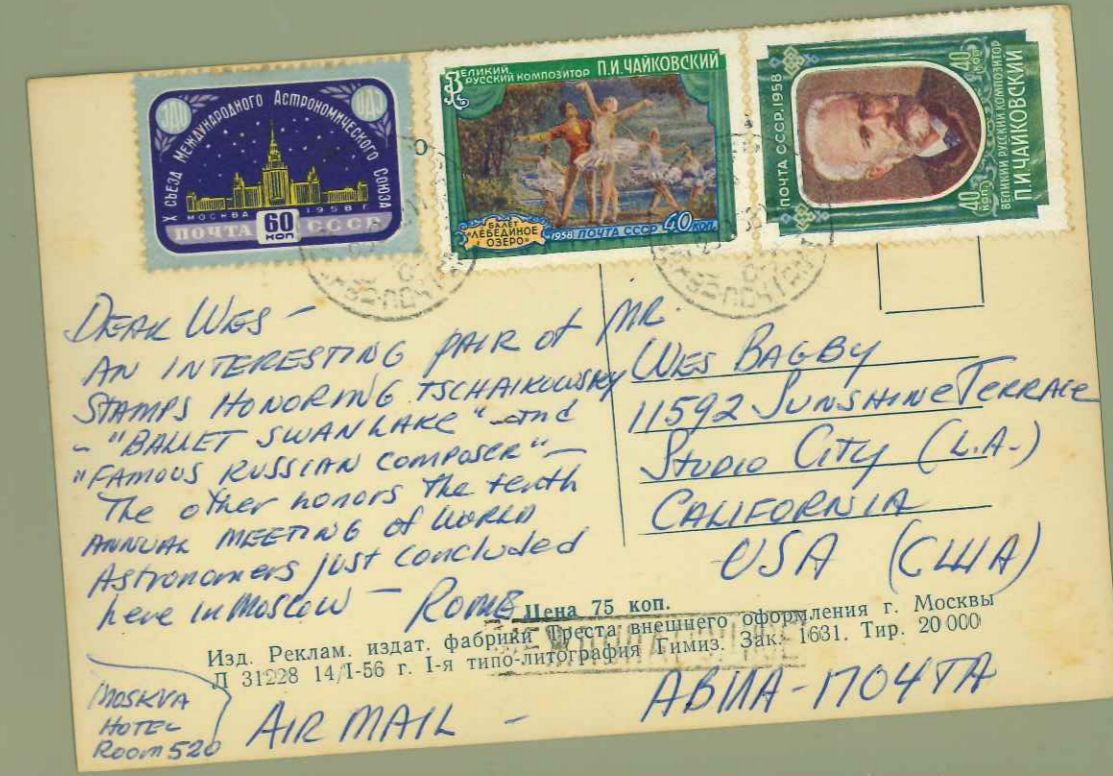 Х СЪЕЗД МЕЖДУНАРОДНОГО АСТРОНОМИЧЕСКОГО СОЮЗА
МОСКВА 1958 г.
ПОЧТА 60 КОП СССР
ВЕЛИКИЙ РУССКИЙ КОМПОЗИТОР П.И.ЧАЙКОВСКИЙ
БАЛЕТ
"ЛЕБЕДИНОЕ
ОЗЕРО"
1958 ПОЧТА СССР 40 КОП.
ПОЧТА СССР.1958
40 КОП. 40 КОП.
ВЕЛИКИЙ РУССКИЙ КОМПОЗИТОР
П.И.ЧАЙКОВСКИЙ
DEAR WES –
AN INTERESTING PAIR of
STAMPS HONORING TSCHAIKOWSKY
– "BALLET SWAN LAKE" and
"FAMOUS RUSSIAN COMPOSER" –
The other honors the tenth
ANNUAL MEETING of WORLD
Astronomers just concluded
here in Moscow – ROME
MR.
WES BAGBY
11592 SUNSHINE TERRACE
STUDIO CITY (L.A.)
CALIFORNIA
USA (США)
Цена 75 коп.
Изд. Реклам. издат. фабрики Треста внешнего оформления г. Москвы
Л 31228 14/I-56 г. I-я типо-литография Гимиз. Зак. 1631. Тир. 20 000
MOSKVA
HOTEL
Room 520
AIR MAIL – АВИА-ПОЧТА